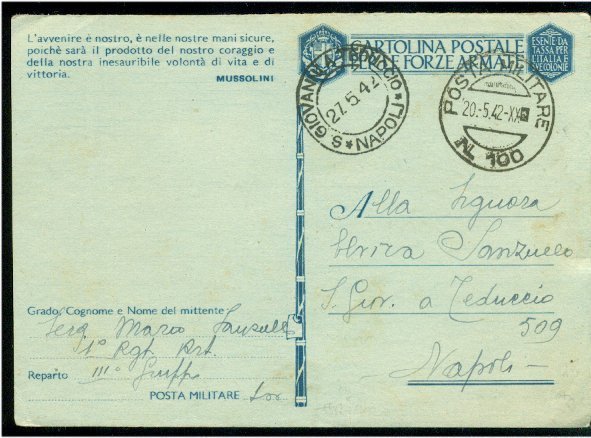 L'avvenire è nostro, è nelle nostre mani sicure,
poichè sarà il prodotto del nostro coraggio e
della nostra inesauribile volontà di vita e di
vittoria.
MUSSOLINI
CARTOLINA POSTALE
PER LE FORZE ARMATE
ESENTE DA
TASSA PER
L'ITALIA E
COLONIE
S. GIOVANNI A TEDUCCIO * NAPOLI *
27.5.42
POSTA MILITARE
20.-5.42-XX
N. 100
Alla Signora
Elvira
S. Giov. a Teduccio
509
Napoli
Grado, Cognome e Nome del mittente
Mario
1° Rgt. Art.
Reparto III°
POSTA MILITARE 100